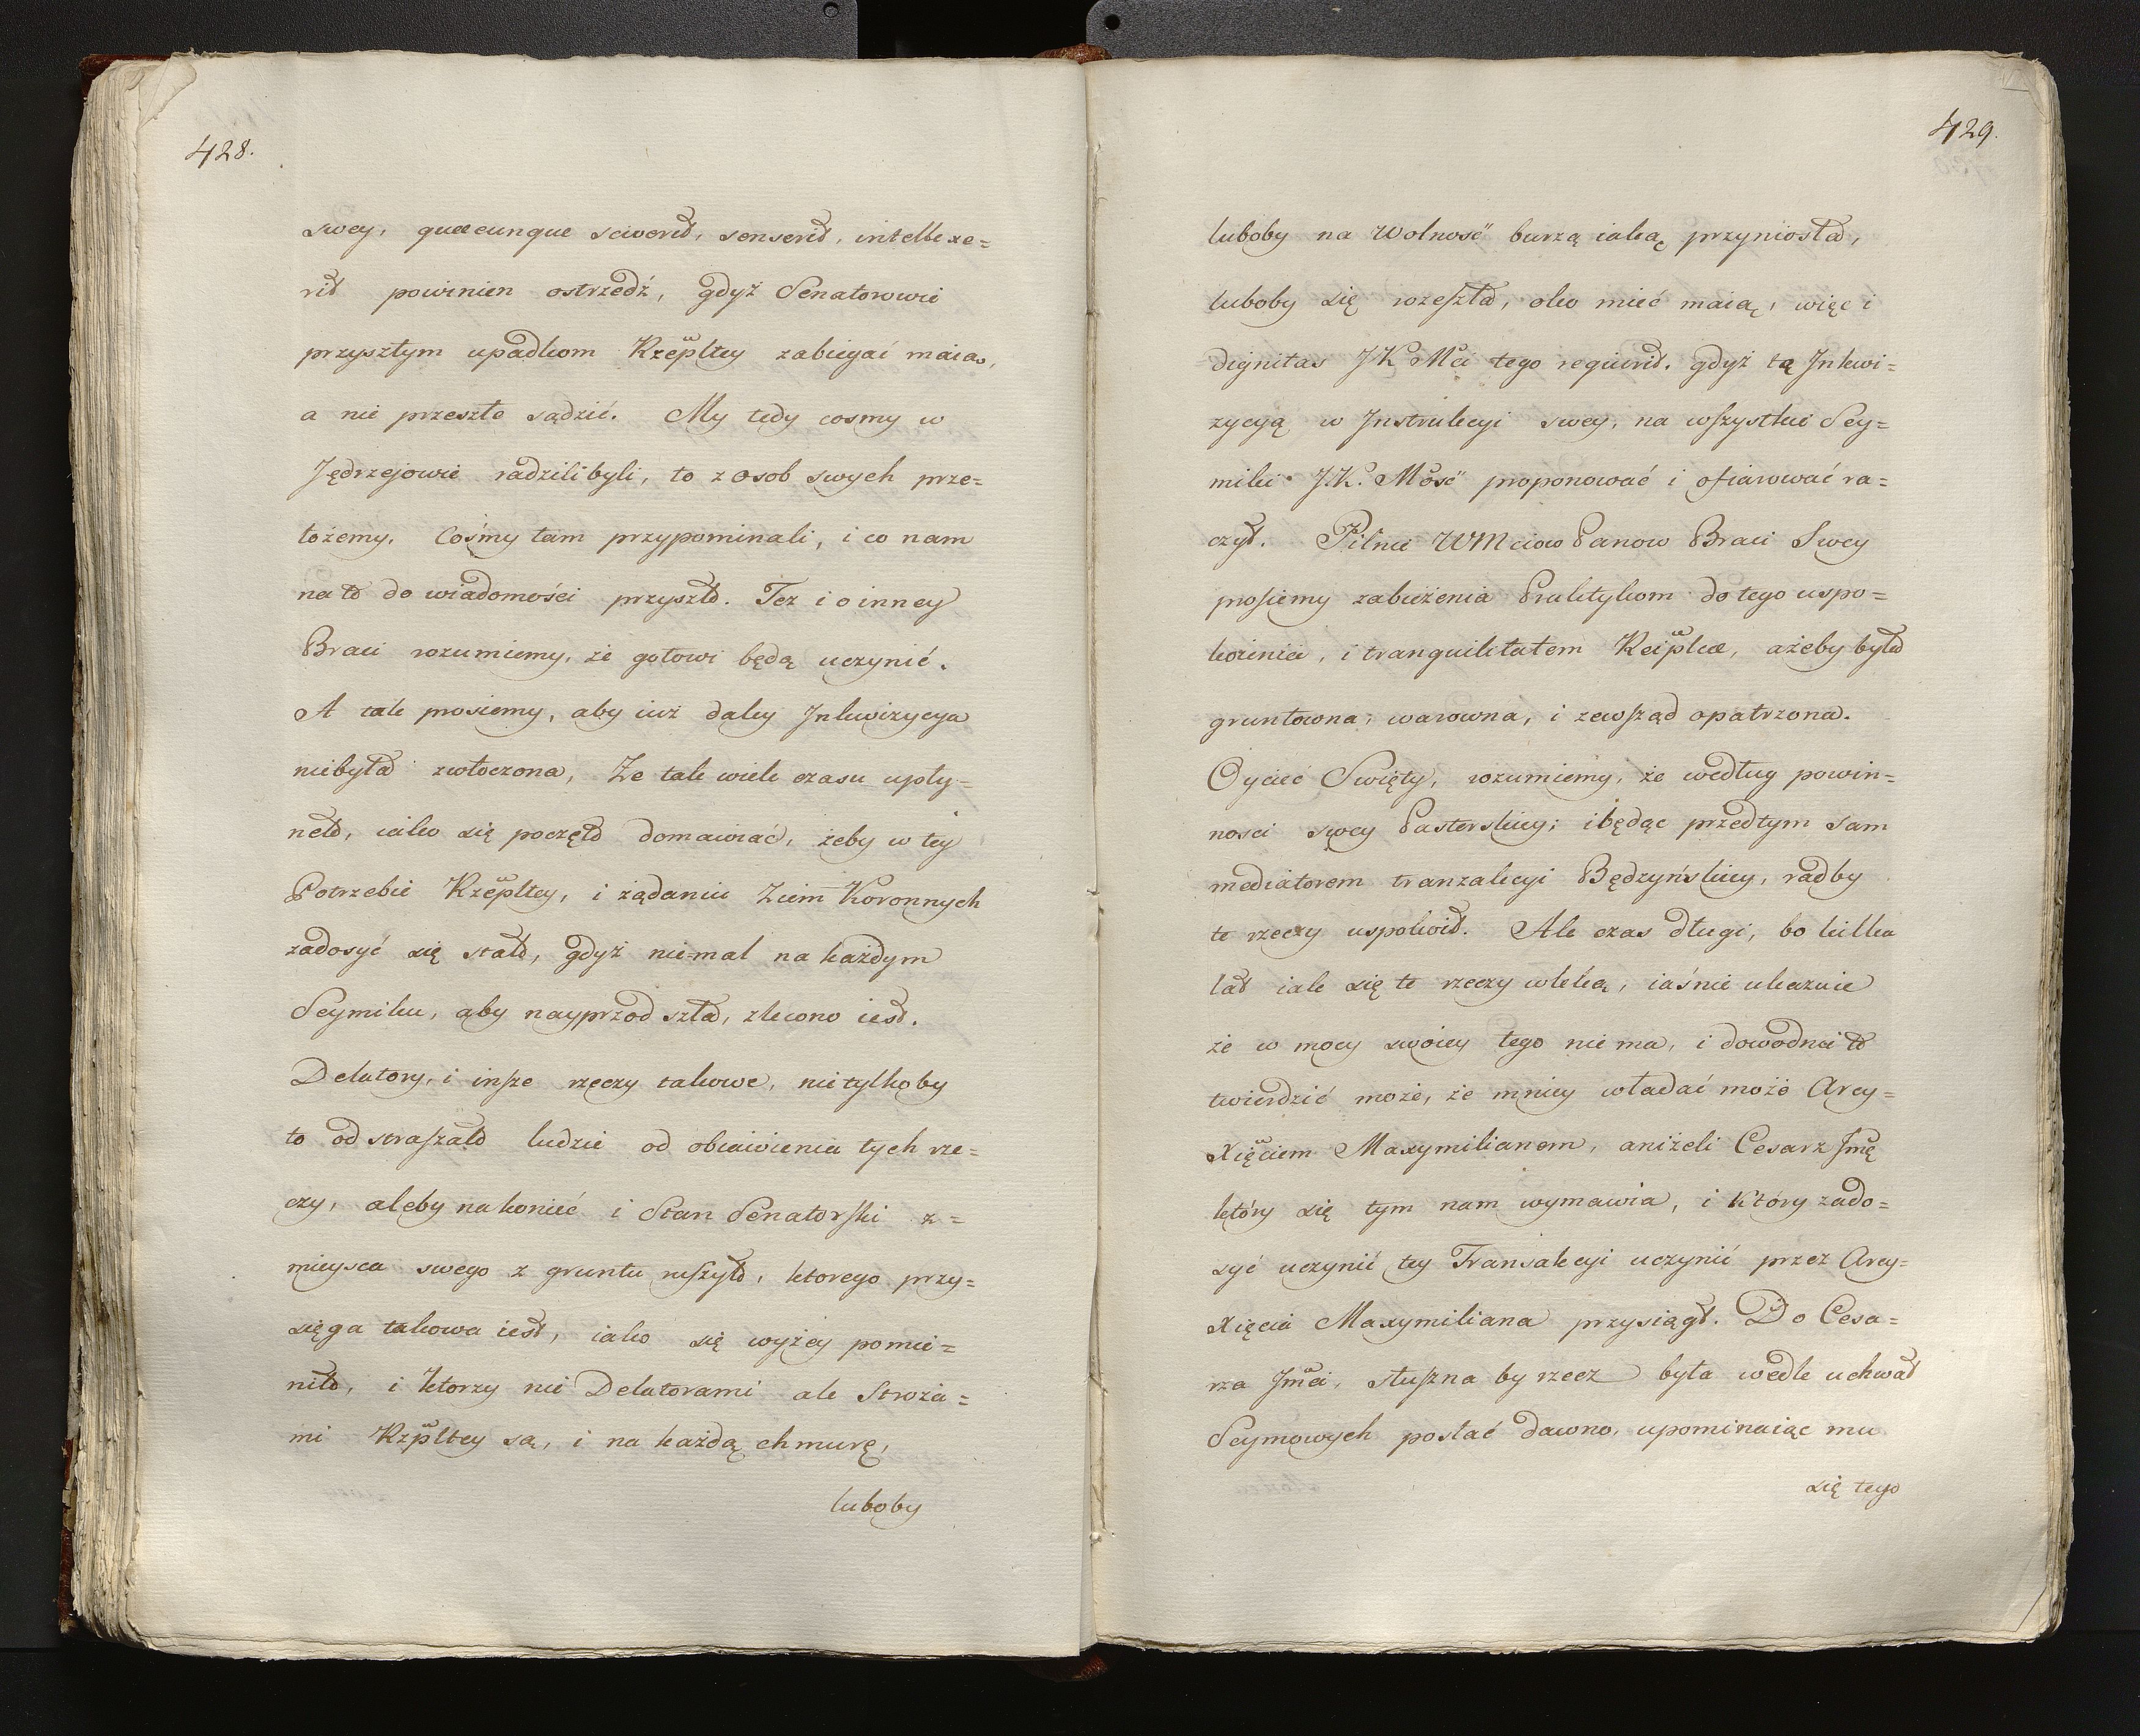 428.
swey, quaecunque sciverit, senserit, intellexe=
rit powinien ostrzedź, gdyż Senatorowie
przyszłym upadkom Rzepltey zabiegać maią,
a nie przeszłe sądzić. My tedy cosmy w
Jędrzejowie radzili byli, to z osob swych prze=
łożemy. Cośmy tam przypominali, i co nam
na to do wiadomości przyszło. Tez i o inney
Braci rozumiemy, że gotowi będą uczynić.
A tak prosiemy, aby iuż daley Inkwizycya
niebyła zwłoczona, Ze tak wiele czasu upły=
neło, iako się poczęło domawiać, żeby w tey
Potrzebie Rzepltey, i żądaniu Ziem Koronnych
zadosyć się stało, gdyż nie=mal na każdym
Seymiku, aby nayprzod szła, zlecono iest.
Delatory, i insze rzeczy takowe, nie tylkoby
to odstraszało ludzie od obiawienia tych rze=
czy, aleby nakonieć i Stan Senatorski z=
mieysca swego z gruntu ruszyło, ktorego przy=
sięga takowa iest, iako się wyżey pomie=
niło, i ktorzy nie Delatorami ale Stroża=
mi Rzpltey są, i na każdą chmurę,
luboby
429.
luboby na Wolność burzą iaką przyniosła,
luboby się rozeszła, oko mieć maią, więc i
dignitas JK Mci tego requirit. gdyż tą Inkwi=
zycyą w Instrukcyi swey, na wszystkie Sey=
miki J.K. Mość proponować i ofiarować ra=
czył. Pilnie WMciow Panow Braci Swey
prosiemy zabieżenia Praktykom do tego uspo=
koienia, i tranquilitatem Reiplcae, ażeby była
gruntowna, warowna, i zewsząd opatrzona.
Oycieć Swięty, rozumiemy, że według powin=
nosci swey Pasterskiey; i będąc przedtym sam
mediatorem tranzakcyi Będzyńskiey, radby
te rzeczy uspokoił. Ale czas długi, bo kilka
lat iak się te rzeczy wleką, iaśnie ukazuie
że w mocy swoiey tego nie ma, i dowodnie to
twierdzić może, że mniey władać może Arcy=
Xięciem Maxymilianem, aniżeli Cesarz Jmę
który się tym nam wymawia, i który zado=
syć uczynić tey Transakcyi uczynić przez Arcy=
Xięcia Maxymiliana przysiągł. Do Cesa=
rza Jmci, słuszna by rzecz była wedle uchwał
Seymowych posłać dawno, upominaiąc mu
się tego